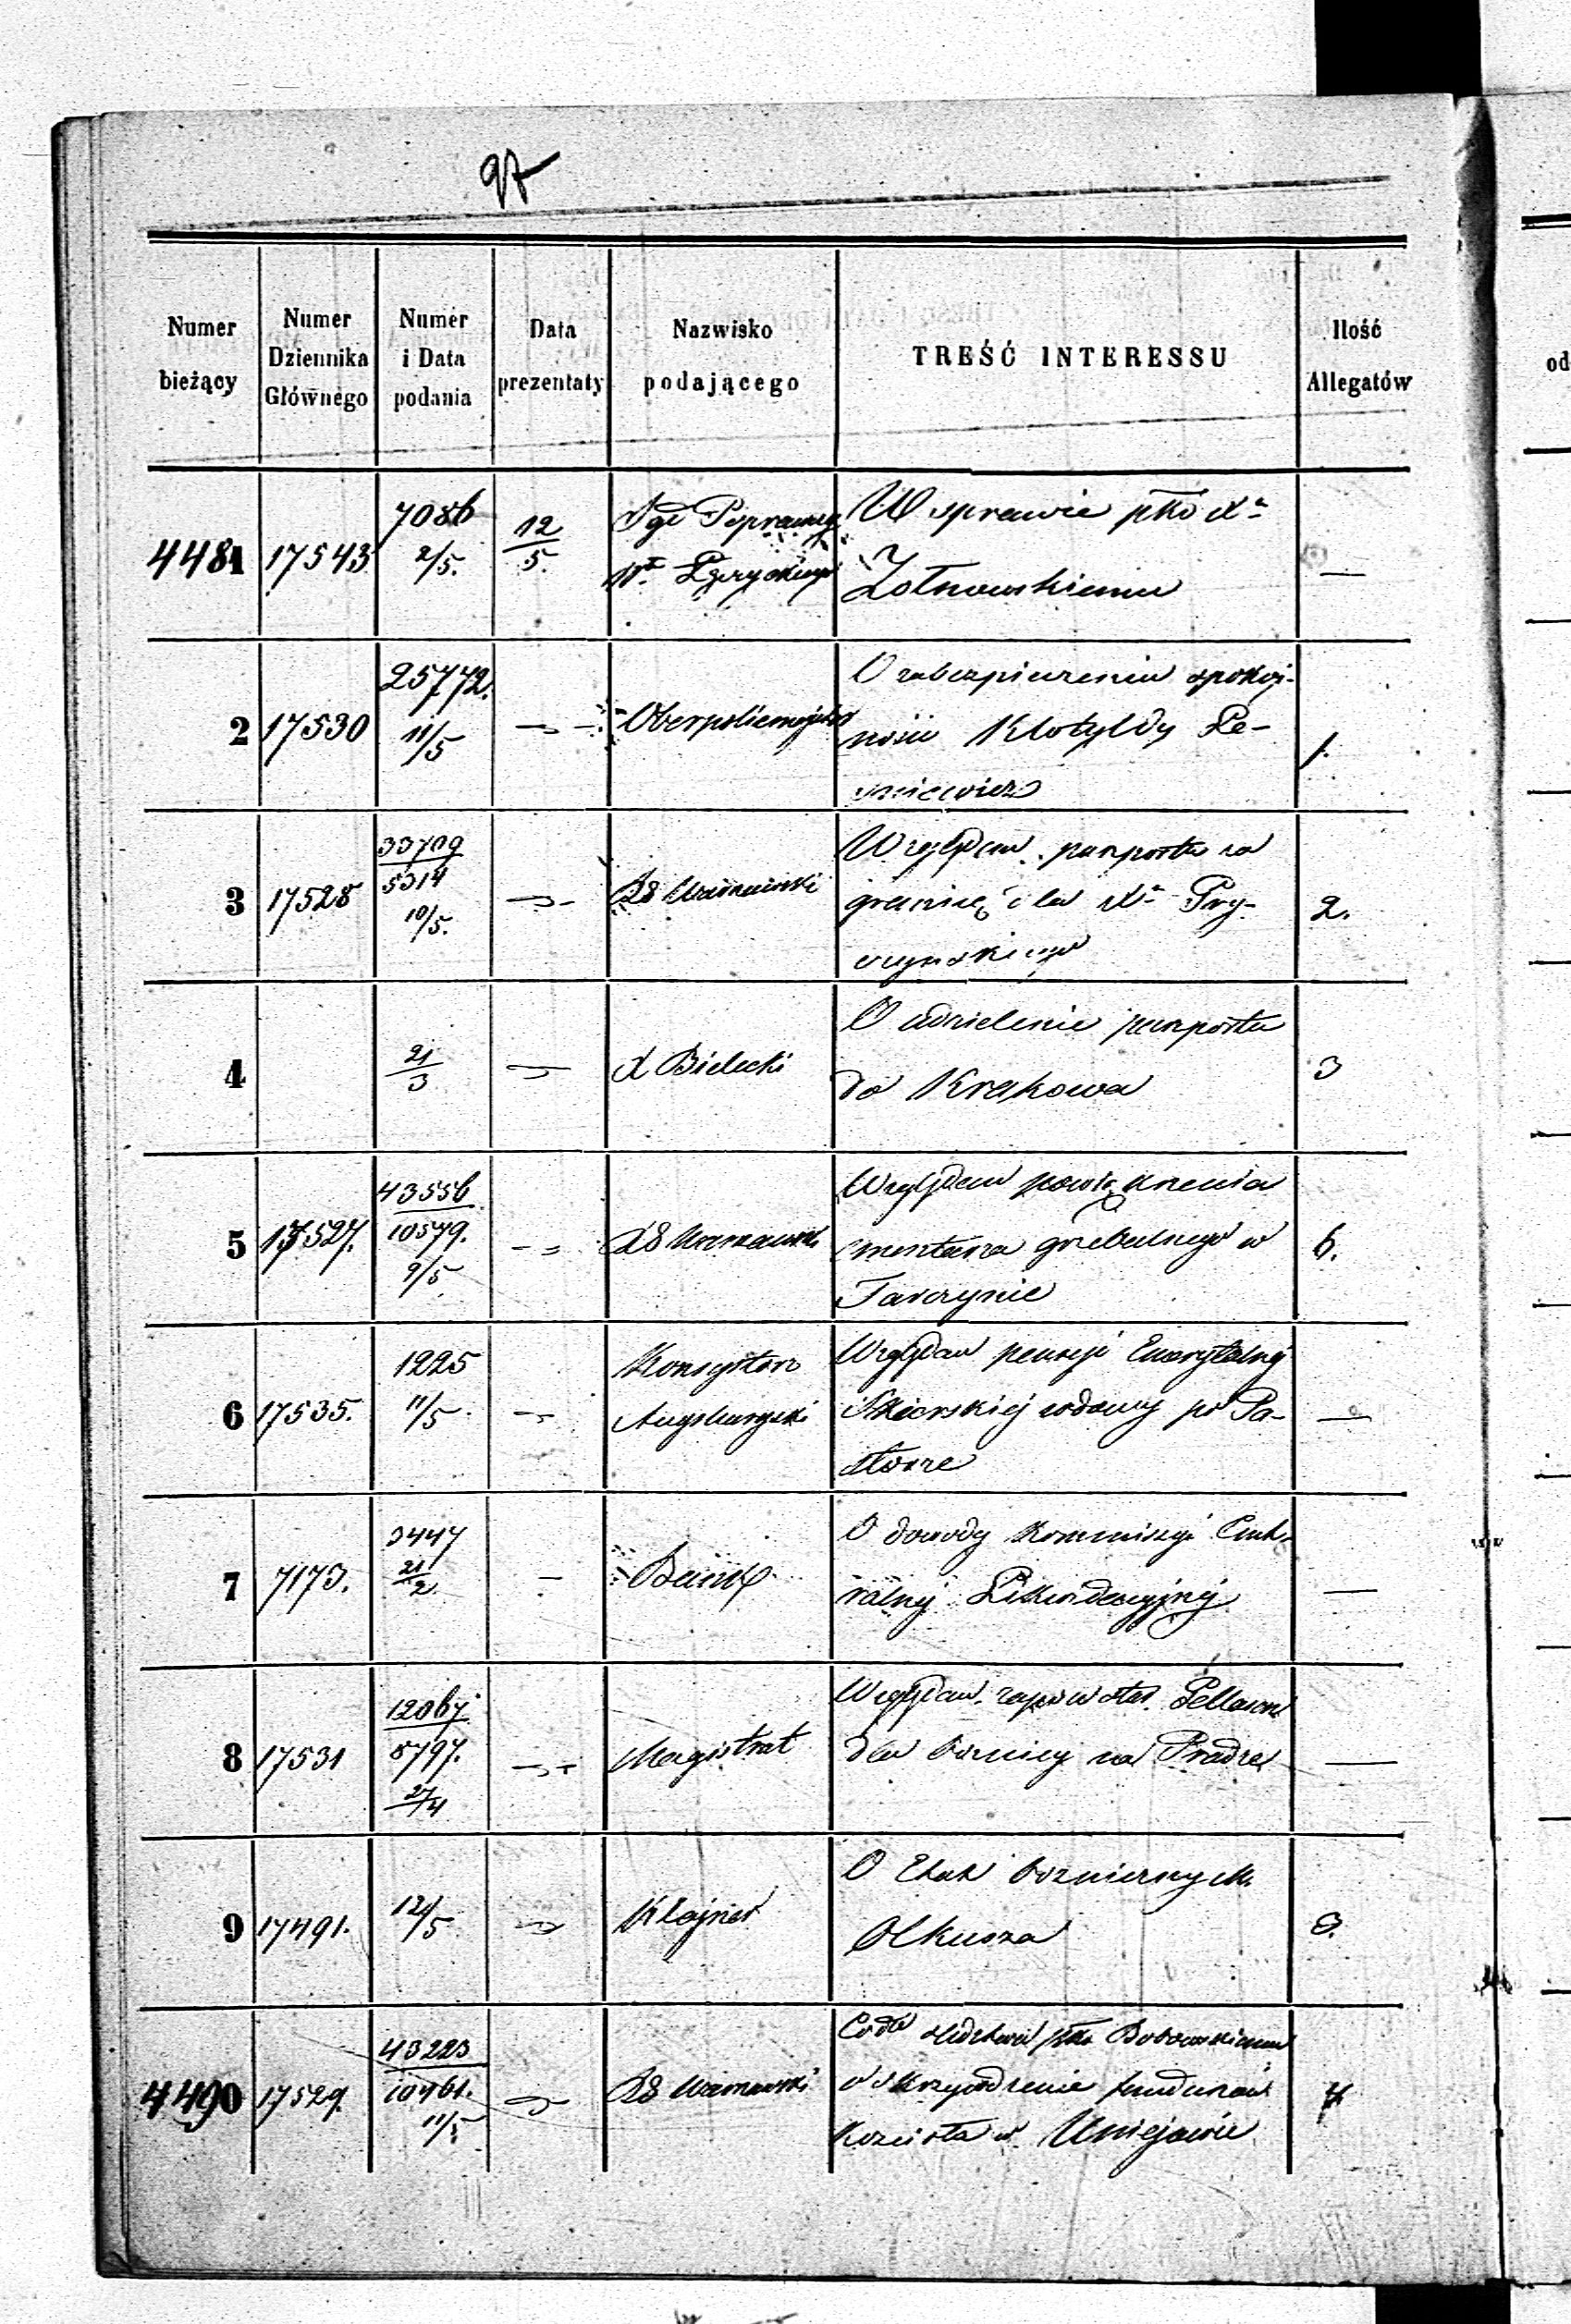 97
Numer bieżący
Numer Dziennika Głównego
Numer i Data podania
Data prezentaty
Nazwisko podającego
TREŚĆ INTERESSU
Ilość Allegatów
4481 17543 7086 2/5. 12/5. W sprawie pko Xa —
Żołnowskiemu
2 17530 25772. 11/5 Oberpolicmajster O zabezpieczenie spokoj- 1.
ności Klotyldy
3 17528 33709 5314 10/5. RG Warszawski Względem paszportu za 2.
granicę dla Xa Pry-
czyńskiego
4 21/3 X Bielecki O udzielenie paszportu 3
do Krakowa
5 17527. 43556 10579. 9/5 RG Warszawski Względem powiększenia 6.
cmentarza grzebalnego w
Tarczynie
6 17535. 1225 11/5 Konsystorz Względem pensyi Emerytalnej —
Augsburgski wdowy po Pa-
storze
7 7173. 3447 21/2 — Bank O dowody Kommissyi Cent- —
ralnej Likwidacyjnej
8 17531 12067 8797. 27/4 Magistrat Względem zapisu —
dla bóżnicy na Pradze
9 17491. 12/5 Klajner O Etat bóżniczny M. 3.
Olkusza
4490 17529. 43223 10461. 11/5 RG Warszawski śledztwa pko Bobrowskiemu 4
o skrzywdzenie funduszów
Kościoła w Uniejowie